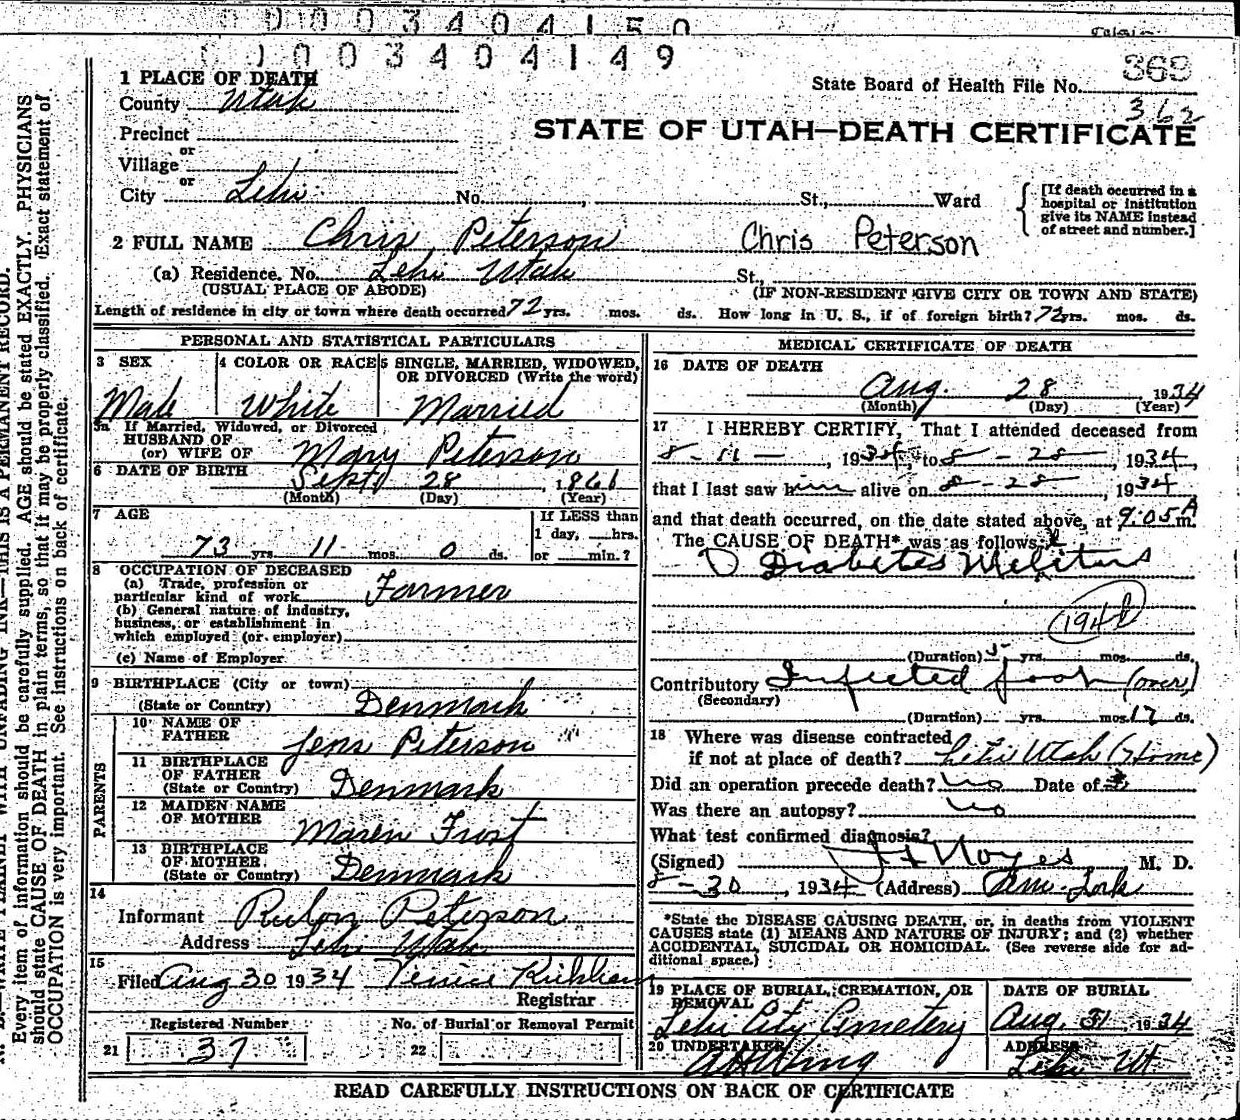 0003404150
0003404149
363
State Board of Health File No.
362
1 PLACE OF DEATH
County Utah
STATE OF UTAH—DEATH CERTIFICATE
Precinct
or
Village
or
City Lehi No. St., Ward
[If death occurred in a hospital or institution give its NAME instead of street and number.]
2 FULL NAME Chris Peterson Chris Peterson
(a) Residence. No. Lehi Utah St.,
(USUAL PLACE OF ABODE) (IF NON-RESIDENT GIVE CITY OR TOWN AND STATE)
Length of residence in city or town where death occurred 72 yrs. mos. ds. How long in U. S., if of foreign birth? 72 yrs. mos. ds.
PERSONAL AND STATISTICAL PARTICULARS
3 SEX
Male
4 COLOR OR RACE
White
5 SINGLE, MARRIED, WIDOWED, OR DIVORCED (Write the word)
Married
5a If Married, Widowed, or Divorced
HUSBAND OF
(or) WIFE OF Mary Peterson
6 DATE OF BIRTH Sept 28, 1860
(Month) (Day) (Year)
7 AGE
73 yrs. 11 mos. 0 ds.
If LESS than
1 day, hrs.
or min.?
8 OCCUPATION OF DECEASED
(a) Trade, profession or
particular kind of work Farmer
(b) General nature of industry,
business, or establishment in
which employed (or employer)
(c) Name of Employer
9 BIRTHPLACE (City or town)
(State or Country) Denmark
PARENTS
10 NAME OF
FATHER Jens Peterson
11 BIRTHPLACE
OF FATHER
(State or Country) Denmark
12 MAIDEN NAME
OF MOTHER Maren Frost
13 BIRTHPLACE
OF MOTHER
(State or Country) Denmark
14
Informant Rulon Peterson
Address Lehi Utah
15
Filed Aug 30 1934 Venice Kirkham
Registrar
Registered Number No. of Burial or Removal Permit
21 37 22
MEDICAL CERTIFICATE OF DEATH
16 DATE OF DEATH
Aug. 28 1934
(Month) (Day) (Year)
17 I HEREBY CERTIFY, That I attended deceased from
8-11-, 1934, to 8-28, 1934,
that I last saw him alive on 8-28, 1934
and that death occurred, on the date stated above, at 9:05 A m.
The CAUSE OF DEATH* was as follows:
Diabetes Melitus
(Duration) 5 yrs. mos. ds.
Contributory Infected foot (over)
(Secondary)
(Duration) yrs. mos. 17 ds.
18 Where was disease contracted
if not at place of death? Lehi Utah (Home)
Did an operation precede death? No Date of
Was there an autopsy? No
What test confirmed diagnosis?
(Signed) Noyes M. D.
8-30, 1934 (Address) Am-Fork
*State the DISEASE CAUSING DEATH, or, in deaths from VIOLENT
CAUSES state (1) MEANS AND NATURE OF INJURY; and (2) whether
ACCIDENTAL, SUICIDAL OR HOMICIDAL. (See reverse side for ad-
ditional space.)
19 PLACE OF BURIAL, CREMATION, OR
REMOVAL
Lehi City Cemetery
DATE OF BURIAL
Aug. 31 1934
20 UNDERTAKER
ADDRESS
Lehi Ut
READ CAREFULLY INSTRUCTIONS ON BACK OF CERTIFICATE
WRITE PLAINLY WITH UNFADING INK—THIS IS A PERMANENT RECORD.
Every item of information should be carefully supplied. AGE should be stated EXACTLY. PHYSICIANS
should state CAUSE OF DEATH in plain terms, so that it may be properly classified. (Exact statement of
OCCUPATION is very important. See instructions on back of certificate.